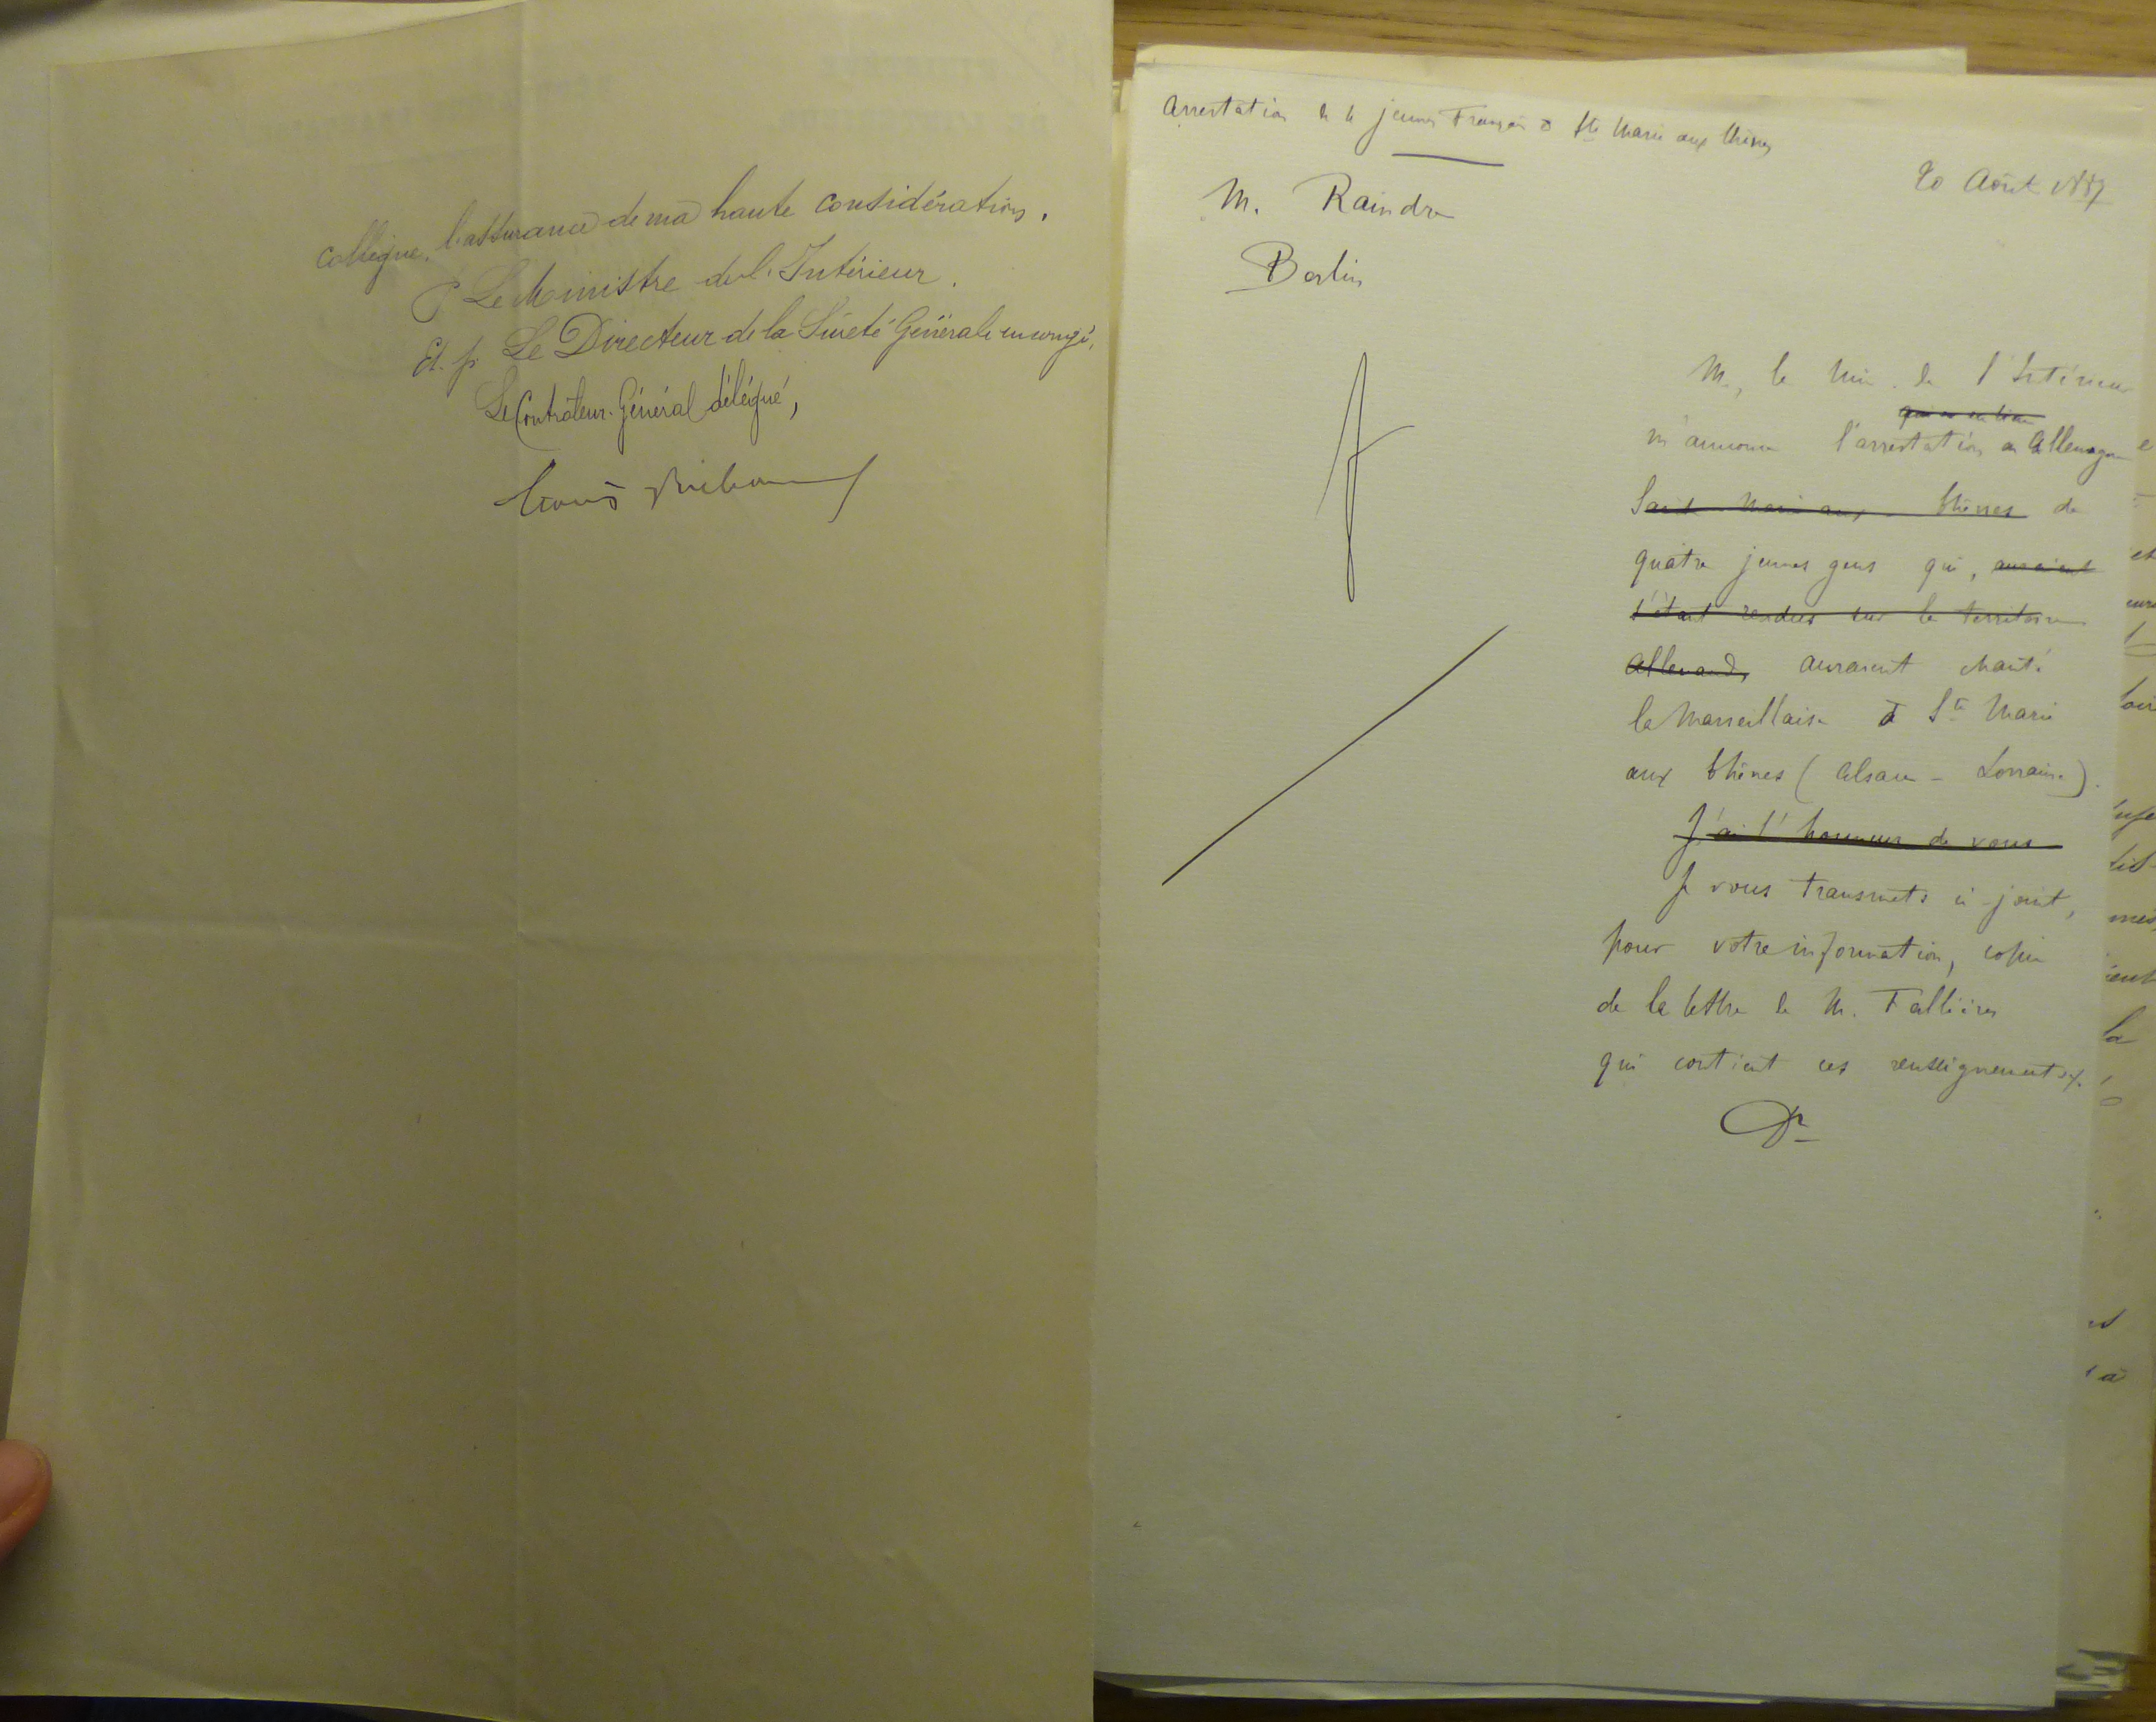 collègue, l'assurance de ma haute considération.
P. Le Ministre de l'Intérieur.
Et. p. Le Directeur de la Sûreté Générale en congé,
Le Contrôleur-Général délégué,
Arrestation de 4 jeunes Français à Ste Marie aux Chênes
20 Août 1887
M. Raindre
Berlin
M. le Min. de l'Intérieur
qui a eu lieu
m'annonce l'arrestation en Allemagne
Sainte Marie aux Chênes de
quatre jeunes gens qui, auraient
s'étant rendus sur le territoire
Allemand, auraient chanté
la Marseillaise à Ste Marie
aux Chênes (Alsace-Lorraine).
J'ai l'honneur de vous
Je vous transmets ci-joint,
pour votre information, copie
de la lettre de M. Fallières
qui contient ces renseignements.